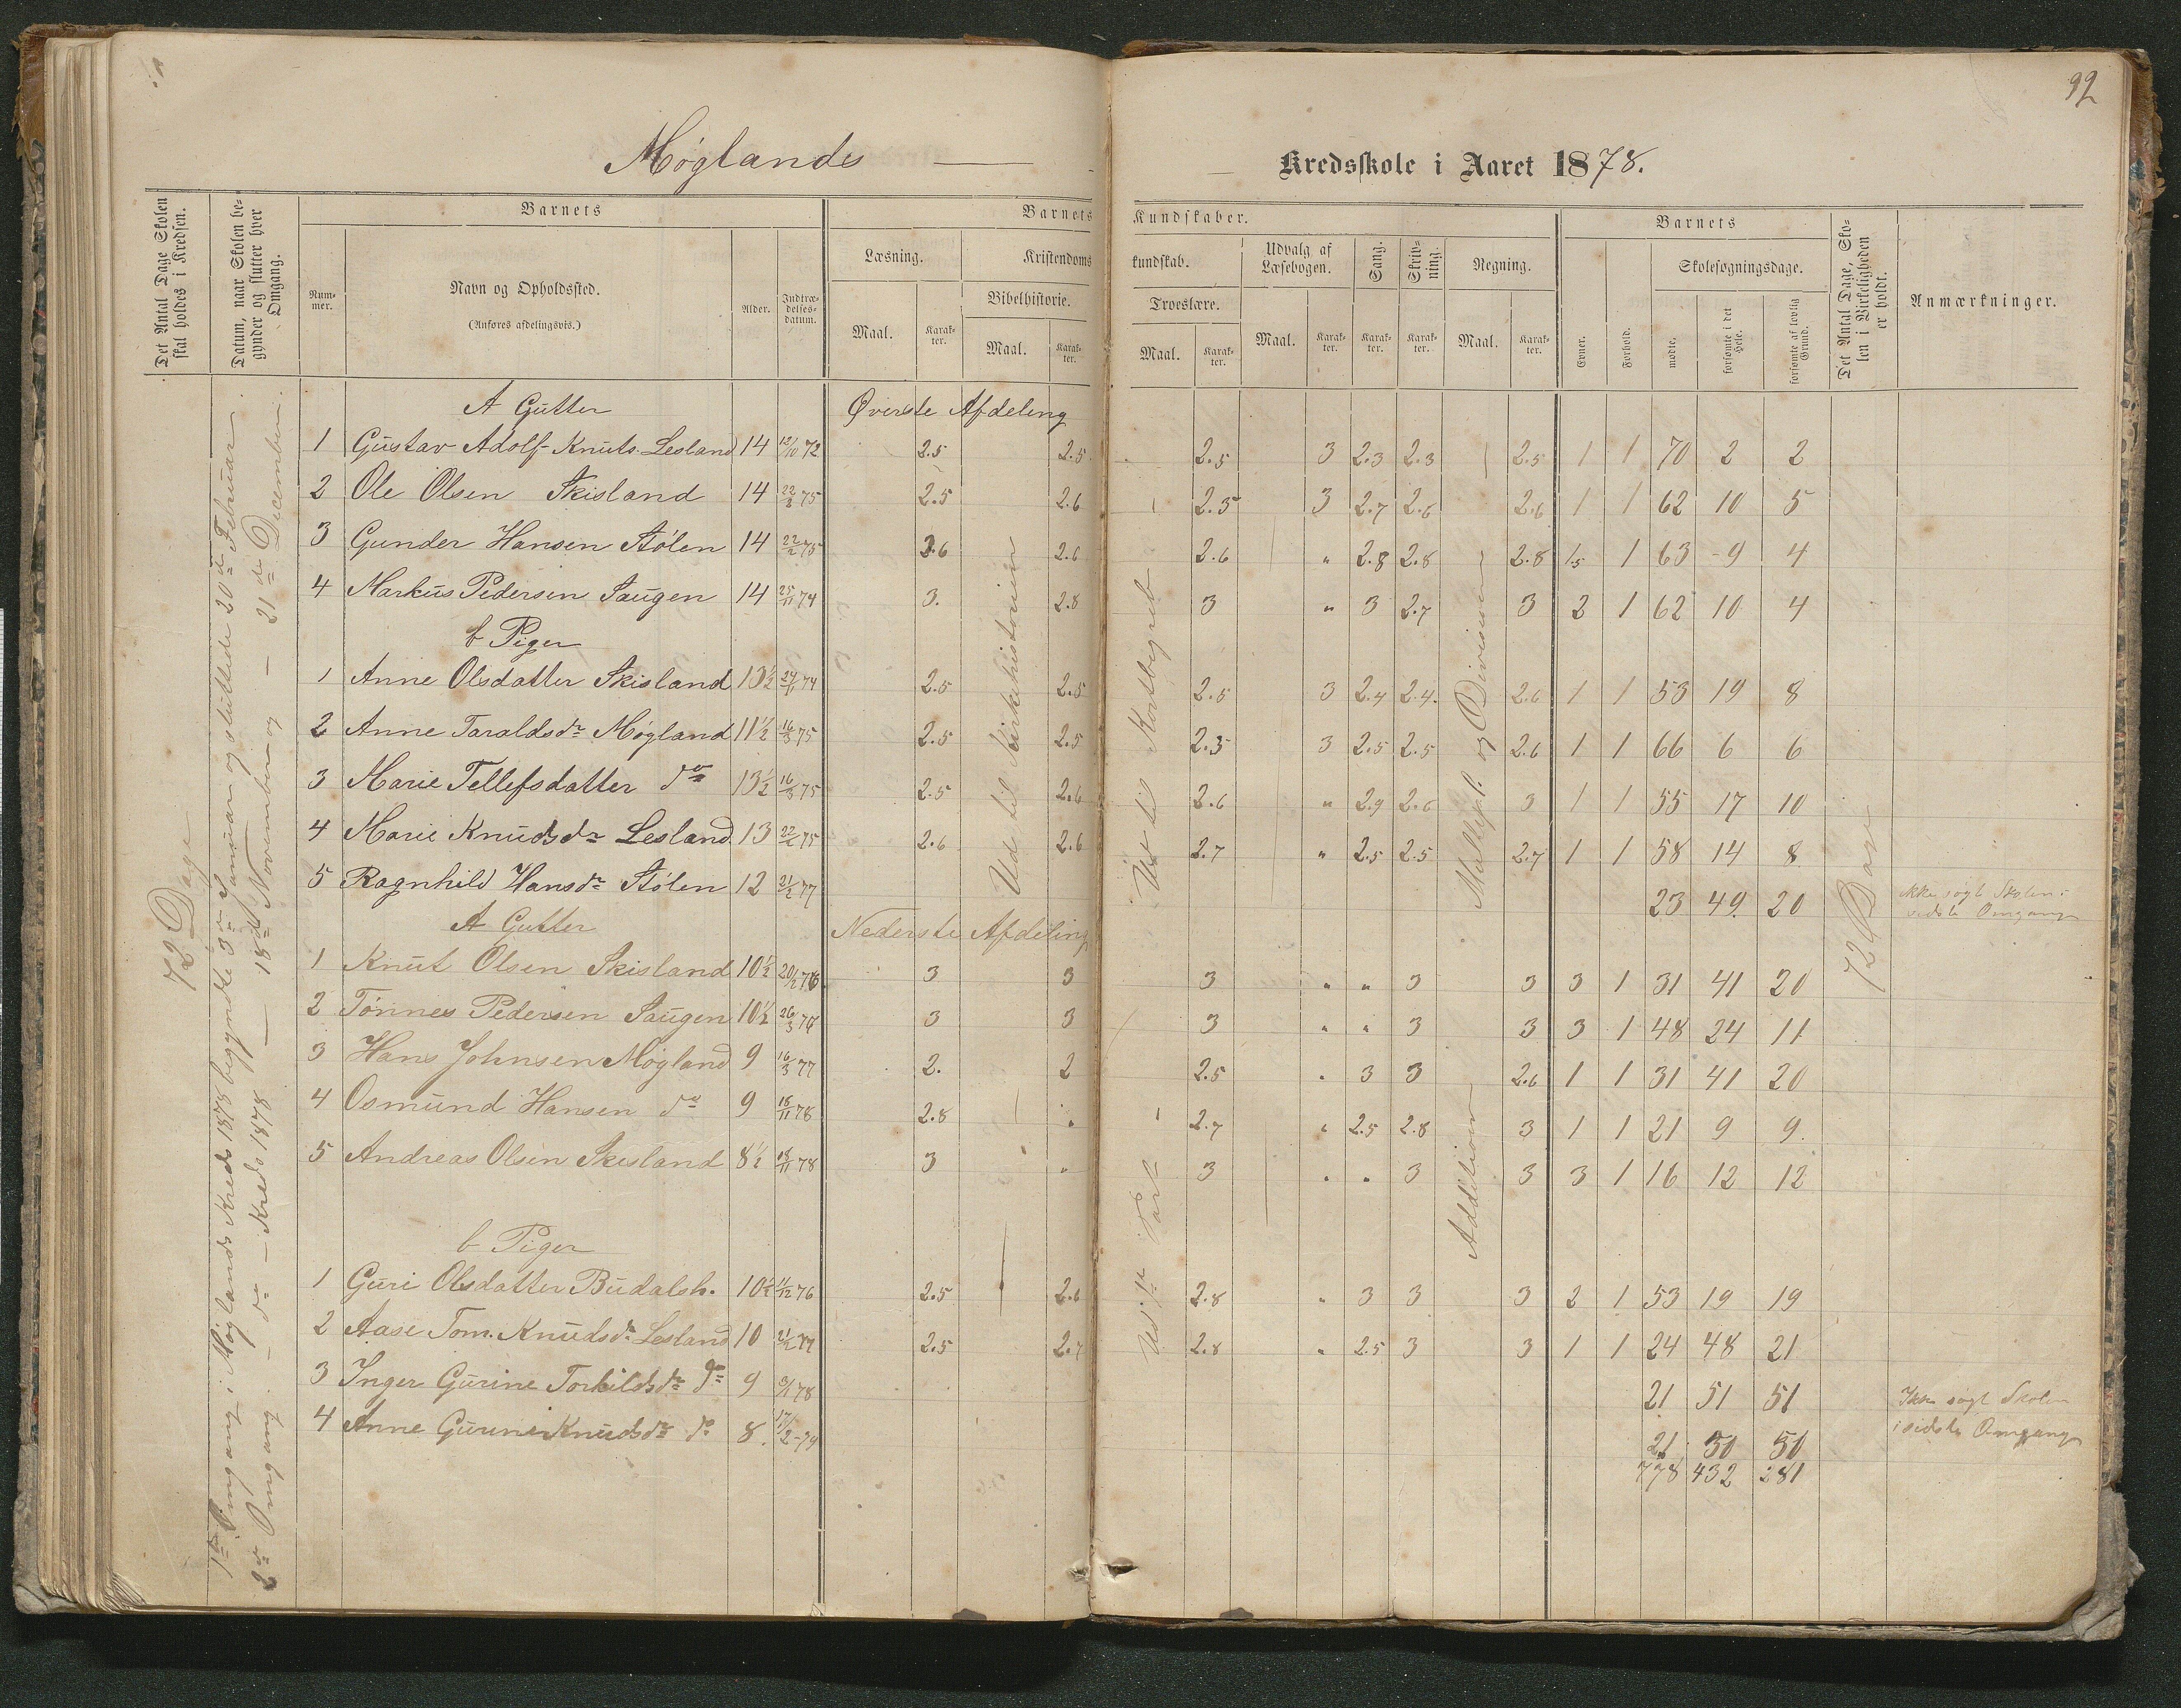 92
Møglands — Kredsskole i Aaret 1878.
Det Antal Dage Skolen skal holdes i Kredsen.
Datum, naar Skolen begynder og slutter hver Omgang.
Barnets
Nummer.
Navn og Opholdssted.
(Anføres afdelingsvis.)
Alder.
Indtrædelsesdatum.
Barnets Kundskaber.
Læsning.
Maal.
Karakter.
Kristendomskundskab.
Bibelhistorie.
Maal.
Karakter.
Troeslære.
Maal.
Karakter.
Udvalg af Læsebogen.
Maal.
Karakter.
Sang.
Karakter.
Skrivning.
Karakter.
Regning.
Maal.
Karakter.
Barnets
Evner.
Forhold.
Skolesøgningsdage.
mødte.
forsømte i det Hele.
forsømte af lovlig Grund.
Det Antal Dage, Skolen i Virkeligheden er holdt.
Anmærkninger.
72 Dage
1ste Omgang i Møglands Kreds 1878 begyndte 3die Januar og sluttede 20de Februar.
2den Omgang - do - Kreds 1878 — 18de November og — 21de December.
A Gutter Øverste Afdeling
1 Gustav Adolf Knuts. Lesland 14 12/10 72 2.5 2.5 2.5 3 2.3 2.3 2.5 1 1 70 2 2
2 Ole Olsen Skisland 14 22/2 75 2.5 2.6 2.5 3 2.7 2.6 2.6 1 1 62 10 5
3 Gunder Hansen Stølen 14 22/2 75 2.6 2.6 2.6 " 2.8 2.8 2.8 1.5 1 63 9 4
4 Markus Pedersen Saugen 14 25/11 74 3. 2.8 3 " 3 2.7 3 2 1 62 10 4
b Piger
1 Anne Olsdatter Skisland 13½ 24/11 74 2.5 2.5 2.5 3 2.4 2.4. 2.6 1 1 53 19 8
2 Anne Taraldsdr Møgland 11½ 16/3 75 2.5 2.5 2.5 3 2.5 2.5 2.6 1 1 66 6 6
3 Marie Tellefsdatter do 13½ 16/3 75 2.5 2.6 2.6 " 2.9 2.6 3 1 1 55 17 10
4 Marie Knudsdr Lesland 13 22/2 75 2.6 2.6 2.7 " 2.5 2.5 2.7 1 1 58 14 8
5 Ragnhild Hansdr Stølen 12 21/2 77 23 49. 20 ikke søgt Skolen i sidste Omgang
Ud til Kirkehistorien
Multipl. og Division
72 Dage
A Gutter Nederste Afdeling
1 Knut Olsen Skisland 10½ 20/12 76 3 3 3 " " 3 3 3 1 31 41 20
2 Tønnes Pedersen Saugen 10½ 26/3 76 3 3 3 " " 3 3 3 1 48 24 11
3 Hans Johnsen Møgland 9 16/3 77 2. 2 2.5 " 3 3 2.6 1 1 31 41 20
4 Osmund Hansen do 9 18/11 78 2.8 " 2.7 " 2.5 2.8 3 1 1 21 9 9.
5 Andreas Olsen Skisland 8½ 18/11 78 3 " 3 " " 3 3 3 1 16 12 12
Addition
b Piger
1 Guri Olsdatter Budalsh. 10½ 11/12 76 2.5 2.6 2.8 " 3 3 3 2 1 53 19 19
2 Aase Tom. Knudsdr Lesland 10 21/2 77 2.5 2.7 2.8 " 2.5 3 3 1 1 24 48 21
3 Inger Gurine Torkildsdr do 9 78 21 51 51 Ikke søgt Skolen
4 Anne Gurine Knudsdr do 8. 21 50 50 i sidste Omgang
778 432 281